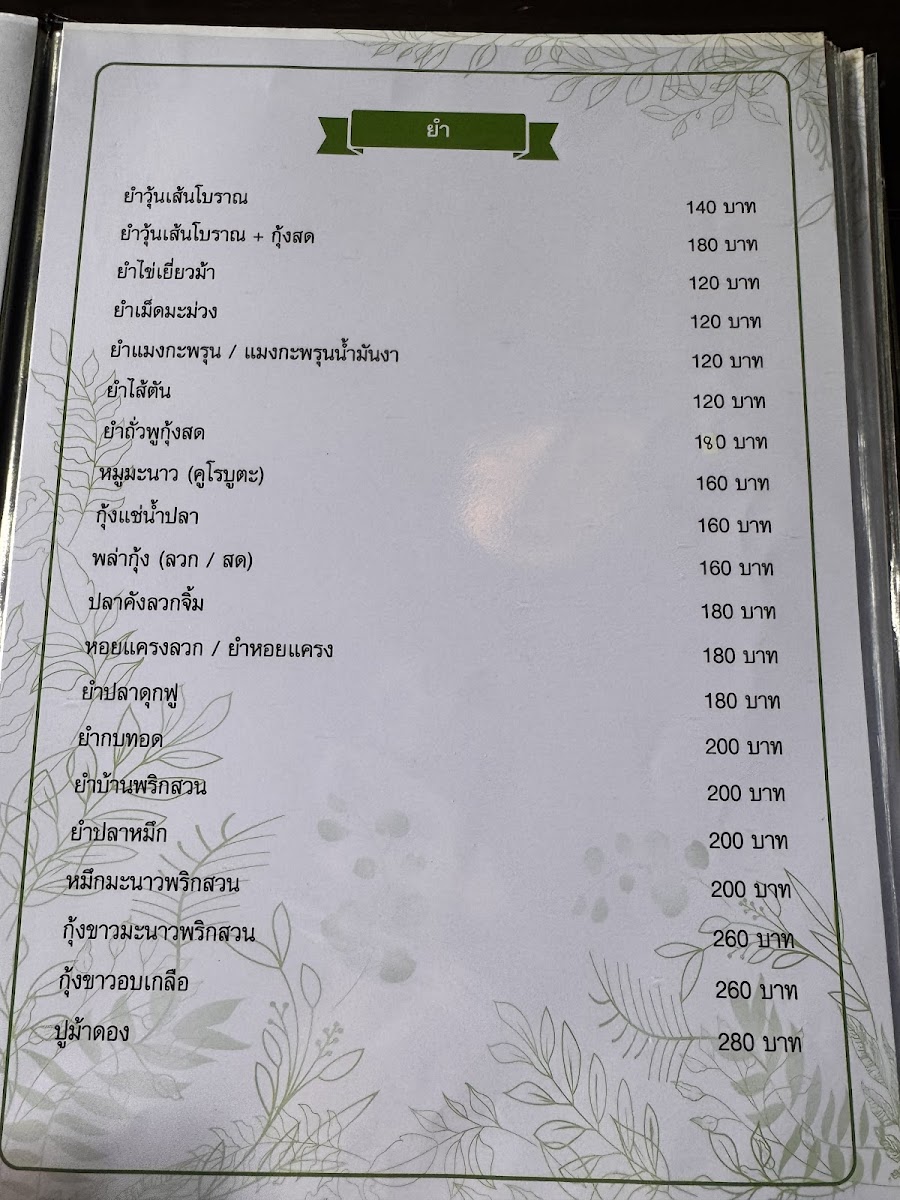 ยำ
ยำวุ้นเส้นโบราณ 140 บาท
ยำวุ้นเส้นโบราณ + กุ้งสด 180 บาท
ยำไข่เยี่ยวม้า 120 บาท
ยำเม็ดมะม่วง 120 บาท
ยำแมงกะพรุน / แมงกะพรุนน้ำมันงา 120 บาท
ยำไส้ตัน 120 บาท
ยำถั่วพูกุ้งสด 180 บาท
หมูมะนาว (คูโรบูตะ) 160 บาท
กุ้งแช่น้ำปลา 160 บาท
พล่ากุ้ง (ลวก / สด) 160 บาท
ปลาคังลวกจิ้ม 180 บาท
หอยแครงลวก / ยำหอยแครง 180 บาท
ยำปลาดุกฟู 180 บาท
ยำกบทอด 200 บาท
ยำบ้านพริกสวน 200 บาท
ยำปลาหมึก 200 บาท
หมึกมะนาวพริกสวน 200 บาท
กุ้งขาวมะนาวพริกสวน 260 บาท
กุ้งขาวอบเกลือ 260 บาท
ปูม้าดอง 280 บาท